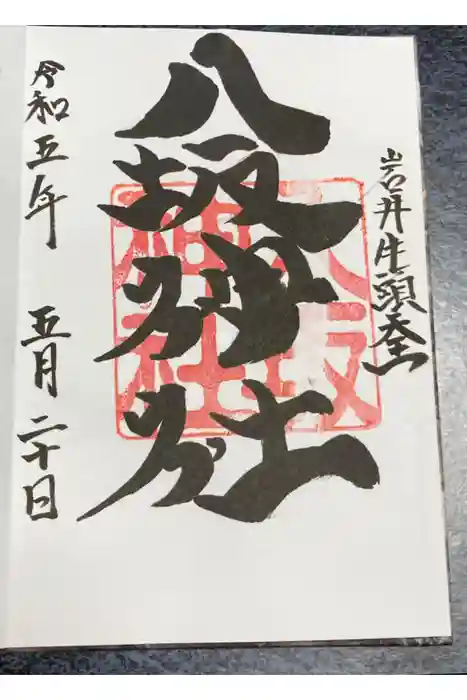 岩井牛頭天王
八坂神社
八坂
神社
令和五年 五月二十日